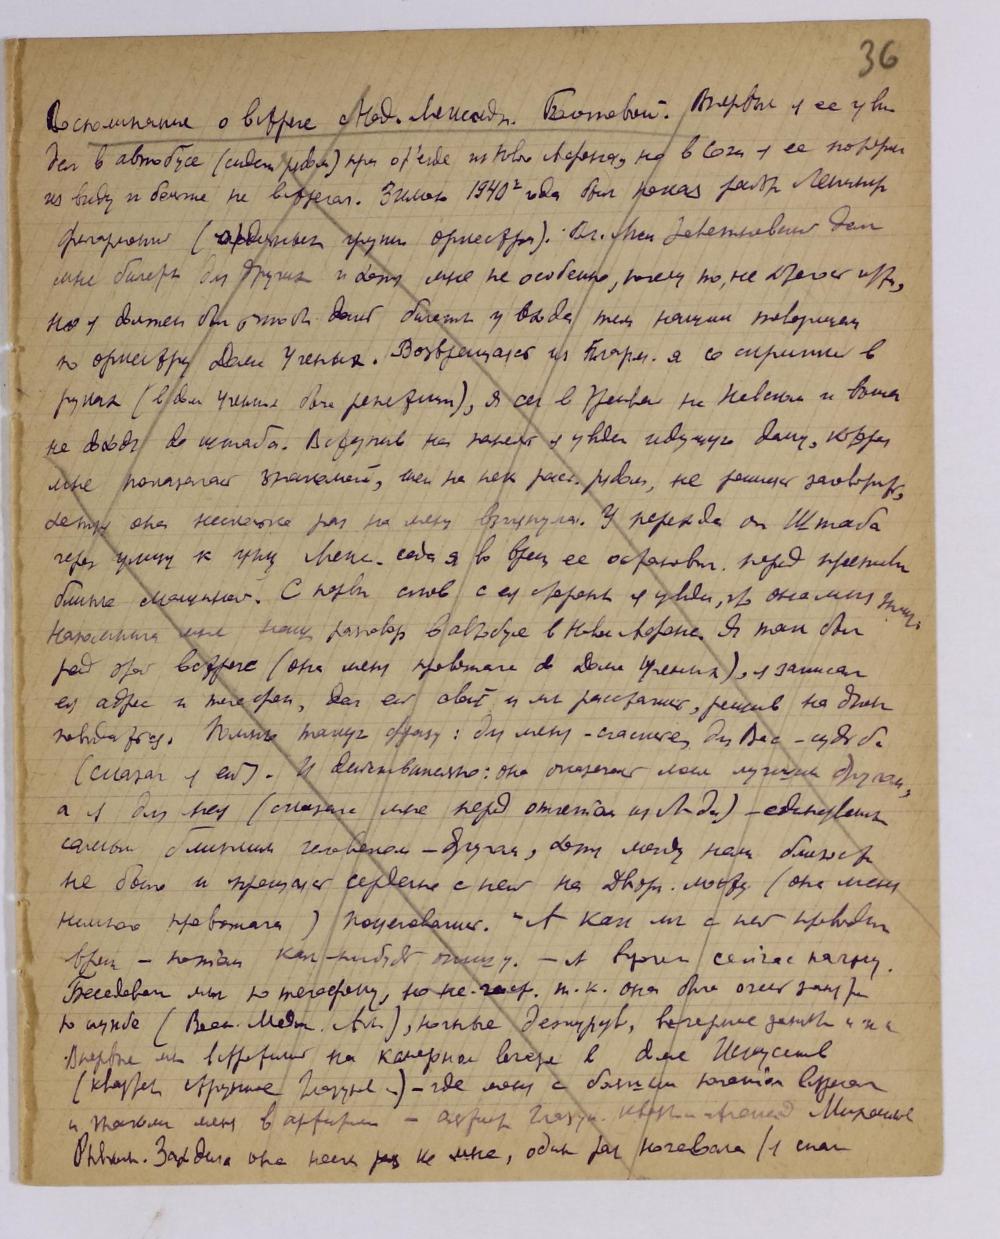 36
Воспоминание о встрече с Мед. Алексндр. Ботовой. Впервые я ее уви
дел в автобусе (сидел рядом) при отъезде из Нового Афона, но в Сочи я ее потерял
из виду и больше не встречал. Зимою 1940 года был показ Ленингр
филармонии (отдельных групп оркестра). дал
мне билеты для других и хотя мне не особенно, почему то, не хотелось идти,
но я должен был отдать билеты у входа тем нашим товарищам
по оркестру Дома Ученых. Возвращаясь из Филарм. я со скрипкой в
руках (в доме Ученых была репетиция), я сел в трамвай на Невском и вышел
не доходя до штаба. Вступив на панель я увидел идущую даму, которая
мне показалась знакомой, шел на нек. раст. рядом, не решаясь заговорить,
хотя она несколько раз на меня взглянула. У перехода от Штаба
через улицу к углу сада я во время ее остановил перед
близко машиной. С первых слов с ее стороны я увидел, что она меня
Напомнила мне наш разговор в автобусе в Новом Афоне. Я так был
рад этой встрече (она меня провожала до Дома Ученых), я записал
ее адрес и телефон, дал ей свой и мы расстались, решив на днях
повидаться. Помню такую фразу: для меня - счастье, для Вас - судьба
(сказал я ей). И действительно: она оказалась моим лучшим другом,
а я для нея (сказала мне перед отлетом из Л-да) - единственным
самым близким человеком - другом, хотя между нами близости
не было и прощаясь сердечно с ней на Двор. мосту (она меня
немного провожала) поцеловались. А как мы с ней проводили
время - потом как-нибудь опишу. - А впрочем сейчас начну.
Беседовали мы по телефону, но не часто т.к. она была очень занята
по службе (Воен. Медиц. Ак.), ночные дежурства, вечерние занятия и т.д.
Впервые мы встретились на камерном вечере в доме Искусств
(квартет Глазун.) - где меня с большим почетом встречали
и меня в артистич. - Глазун. Михаилом
Заходила она несколько раз ко мне, один раз ночевала (я спал